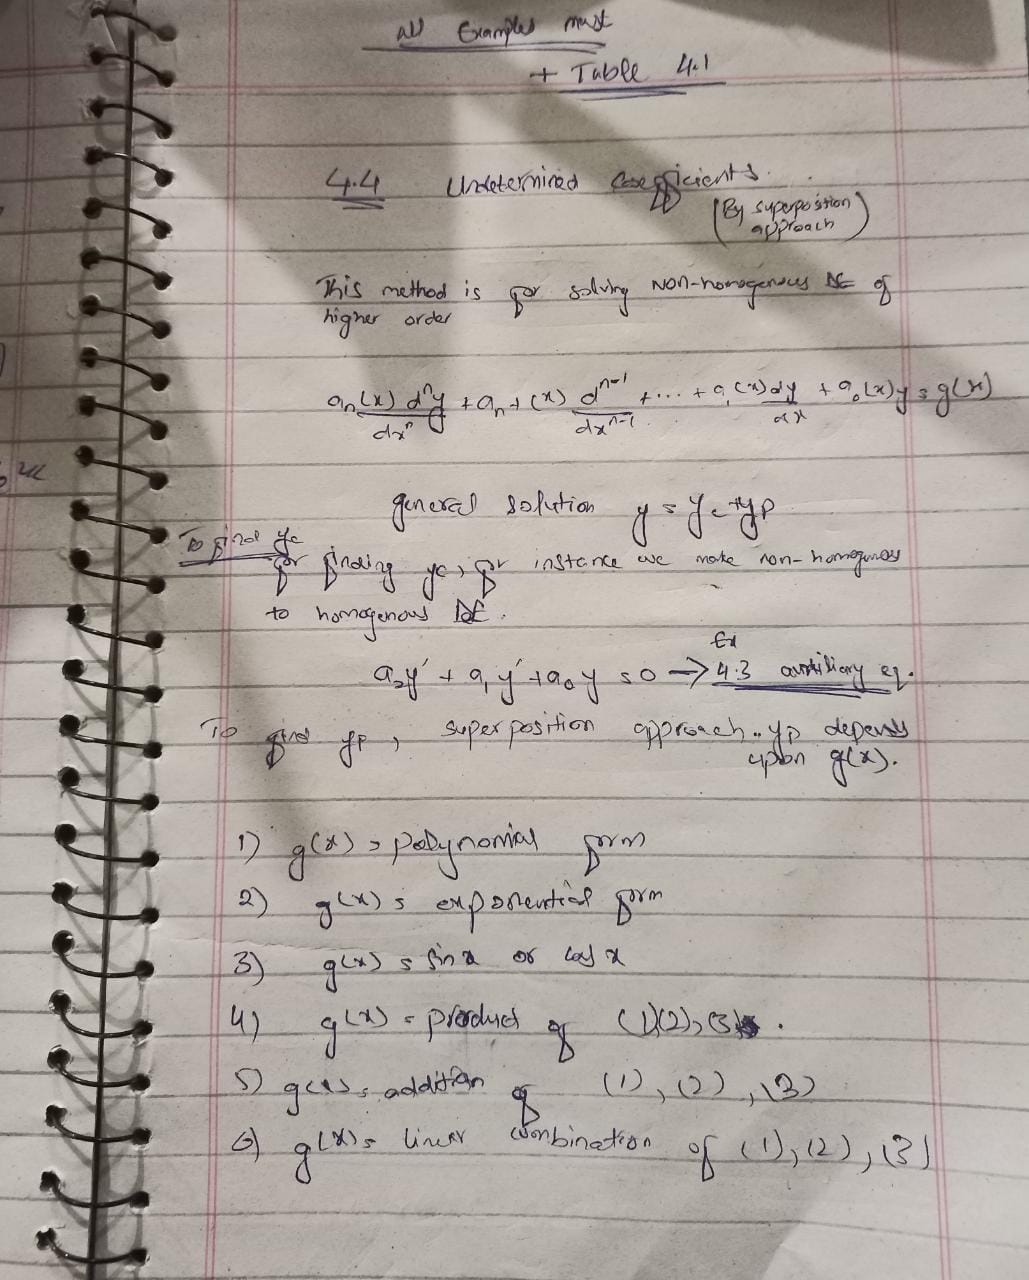 all Examples must
+ Table 4.1
4.4 Undetermined Coefficients.
(By superposition
approach)
This method is for solving NON-homogenous DE of
higher order
an(x) dⁿy/dxⁿ + an-1(x) dⁿ⁻¹/dxⁿ⁻¹ + ... + a₁(x) dy/dx + a₀(x)y = g(x)
general solution y = yc + yp
To find yc
for finding yc, for instance we make non-homogenous
to homogenous DE.
Ex
a₂y'' + a₁y' + a₀y = 0 → 4.3 auxiliary eq.
To find yp, superposition approach .. yp depends
upon g(x).
1) g(x) = polynomial form
2) g(x) = exponential form
3) g(x) = sin x or cos x
4) g(x) = product of (1)(2),(3).
5) g(x) = addition of (1), (2), (3)
6) g(x) = linear combination of (1), (2), (3)